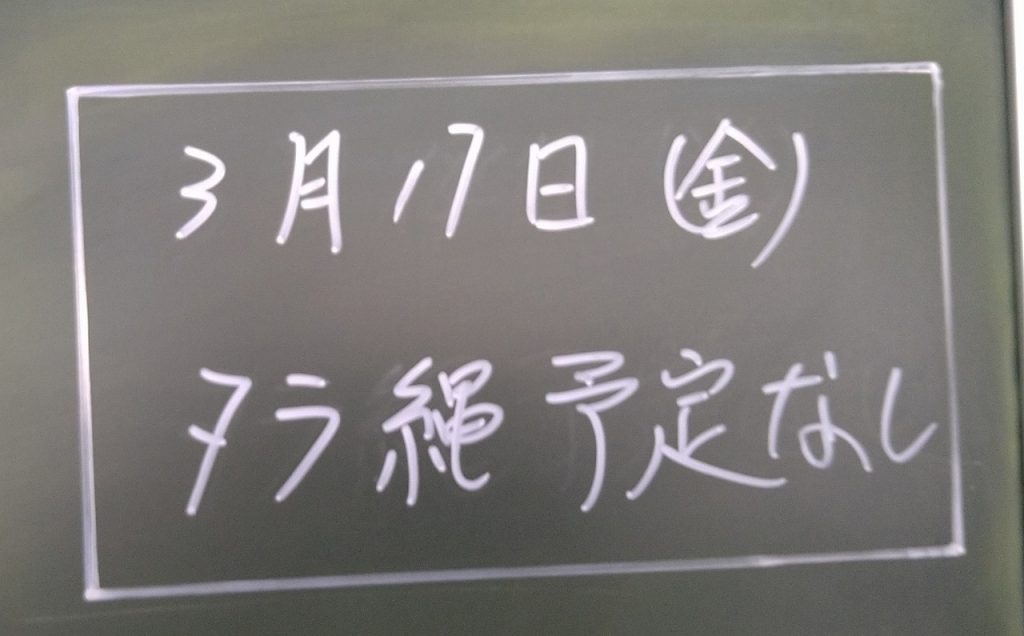 3月17日(金)
タラ縄予定なし